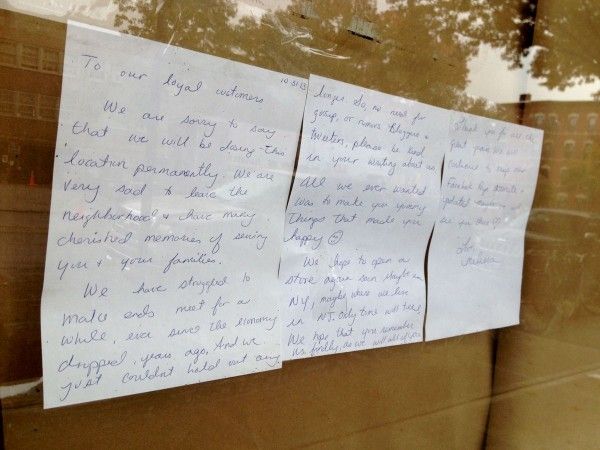 10-31-13
To our loyal customers
We are sorry to say
that we will be closing this
location permanently. We are
very sad to leave the
neighborhood & have many
cherished memories of serving
you & your families.
We have struggled to
make ends meet for a
while, ever since the economy
dropped, years ago. And we
just couldn't hold out any
longer. So, no need for
gossip, or rumors bloggers &
tweeters, please be kind
in your writing about us
All we ever wanted
was to make you yummy
things that made you
happy ☺
We hope to open a
store again soon maybe in
NY, maybe where we live
in NJ. Only time will tell.
We hope that you remember
us fondly, as we will all of you.
Thank you for all the
past years. We will
continue to keep our
Facebook Page
updated
see you there
Love